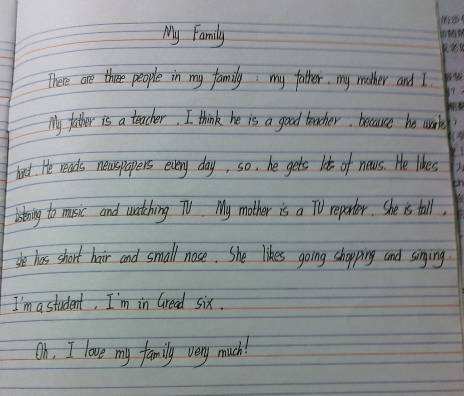 My Family
There are three people in my family : my father, my mother and I.
My father is a teacher. I think he is a good teacher, because he works
hard. He reads newspapers every day, so, he gets lots of news. He likes
listening to music and watching TV. My mother is a TV reporter. She is tall,
she has short hair and small nose. She likes going shopping and singing.
I'm a student. I'm in Gread six.
Oh, I love my family very much!